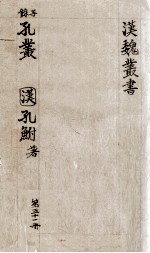 漢魏叢書
子餘
孔叢 漢孔鮒著
第三十一冊